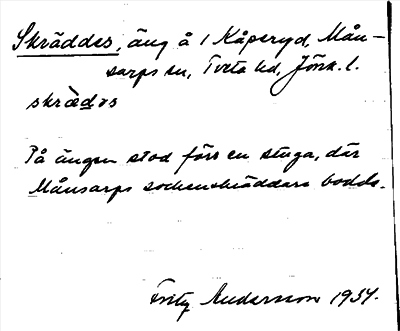 Skräddes, äng å 1 Kåperyd, Mån-
sarps sn, Tveta hd, Jönk. l.
skrædəs
På ängen stod förr en stuga, där
Månsarps sockenskräddare bodde.
Fritz Andersson 1934.